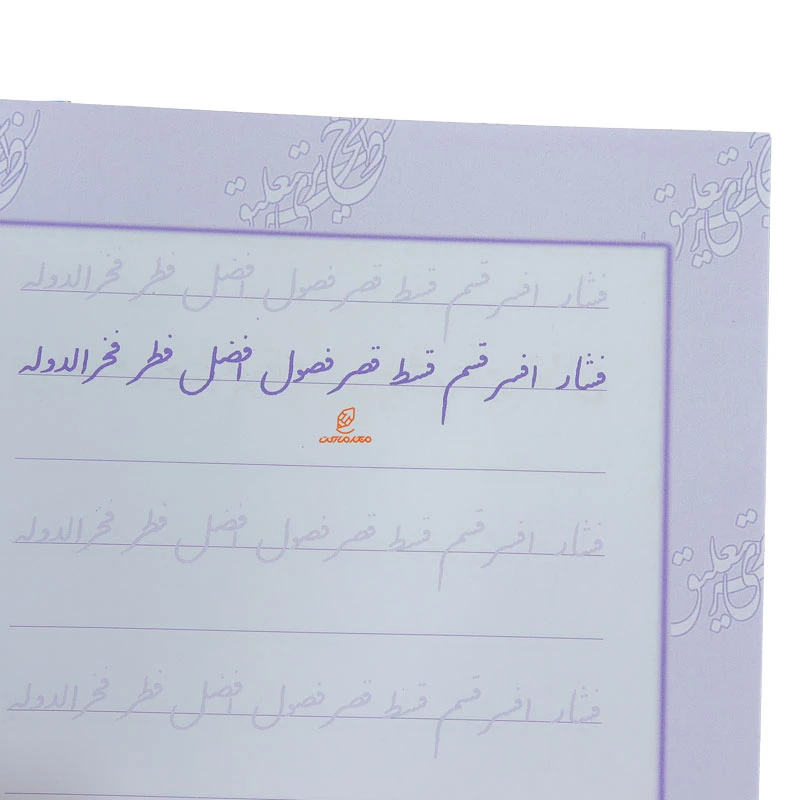 فشار افسر قسم قسط قصر فصول افضل فطر فخرالدوله
فشار افسر قسم قسط قصر فصول افضل فطر فخرالدوله
فشار افسر قسم قسط قصر فصول افضل فطر فخرالدوله
فشار افسر قسم قسط قصر فصول افضل فطر فخرالدوله